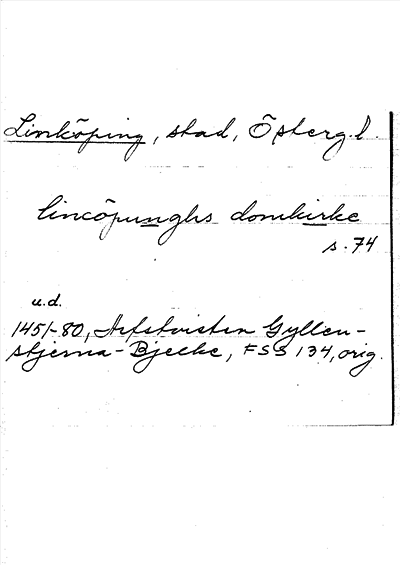 Linköping, stad, Östergl.
lincöpunghs domkirke
s. 74
u.d.
1451-80, Arfstvisten Gyllen-
stjerna-Bjelke, FSS 134, orig.